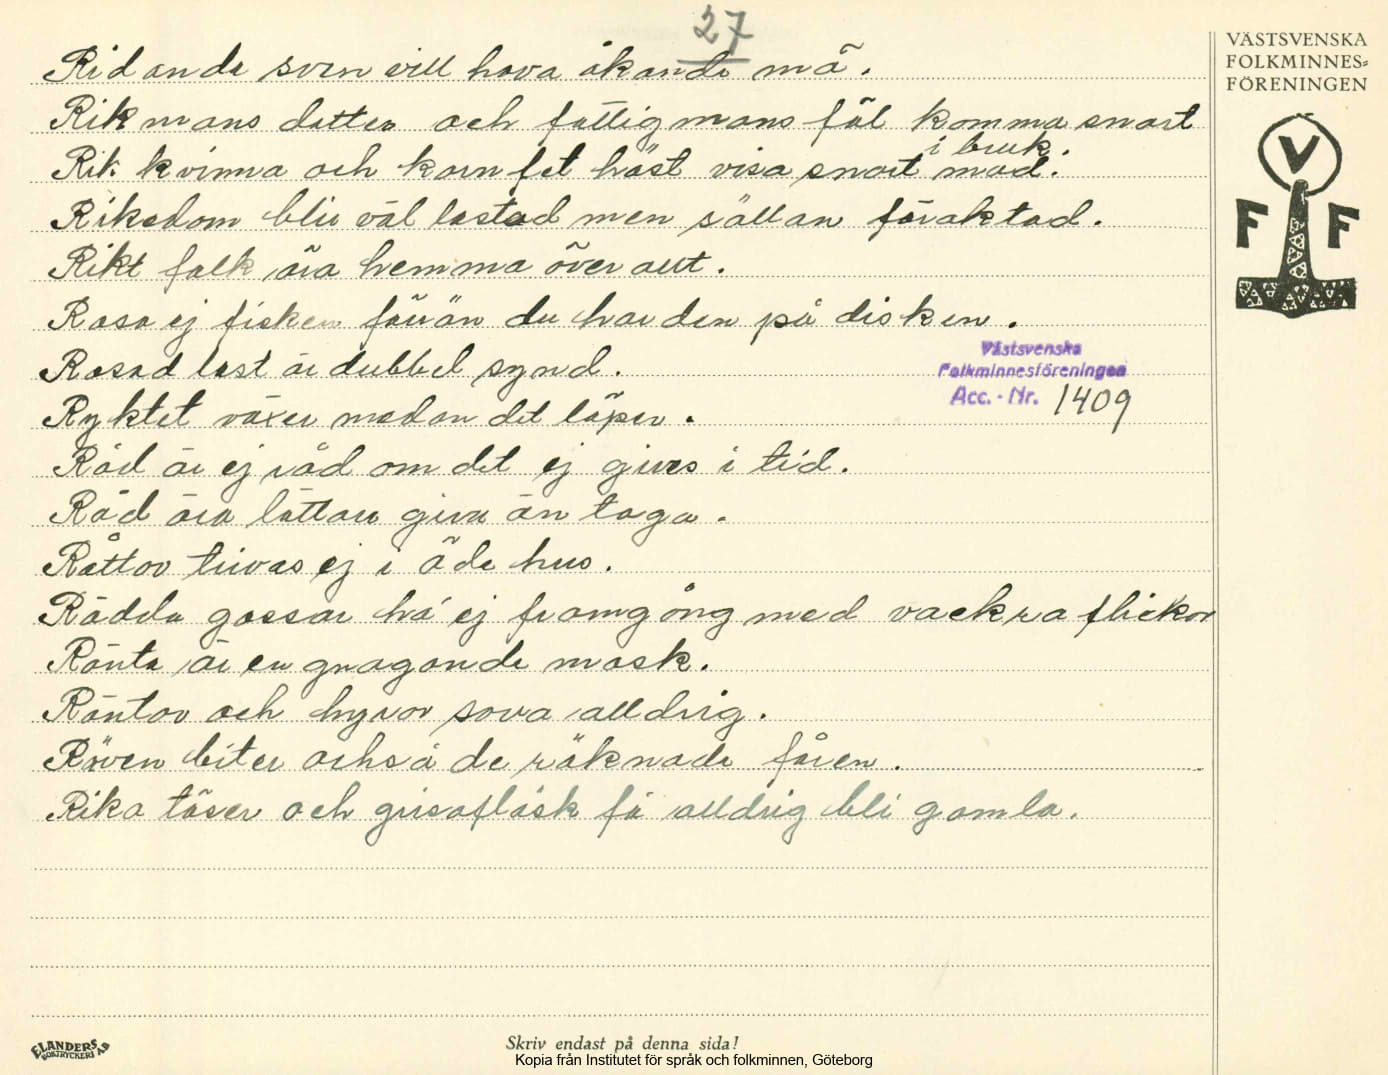 27
Ridande sven vill hava åkande mö.
Rik mans dotter och fattig mans föl komma snart
i bruk.
Rik kvinna och kornfet häst visa snart mod.
Rikedom blir väl lastad men sällan föraktad.
Rikt folk äro hemma överallt.
Rosa ej fisken förrän du har den på disken.
Rosad last är dubbel synd.
Ryktet växer medan det löper.
Råd är ej råd om det ej gives i tid.
Råd äro lättare giva än taga.
Råttor trivas ej i öde hus.
Rädda gossar ha ej framgång med vackra flickor
Ränta är en gnagande mask.
Räntor och hyror sova alldrig.
Räven biter också de räknade fåren.
Rika töser och grisafläsk få alldrig bli gamla.
VÄSTSVENSKA
FOLKMINNES=
FÖRENINGEN
V
F F
Västsvenska
Folkminnesföreningen
Acc. - Nr. 1409
ELANDERS
BOKTRYCKERI AB
Skriv endast på denna sida!
Kopia från Institutet för språk och folkminnen, Göteborg